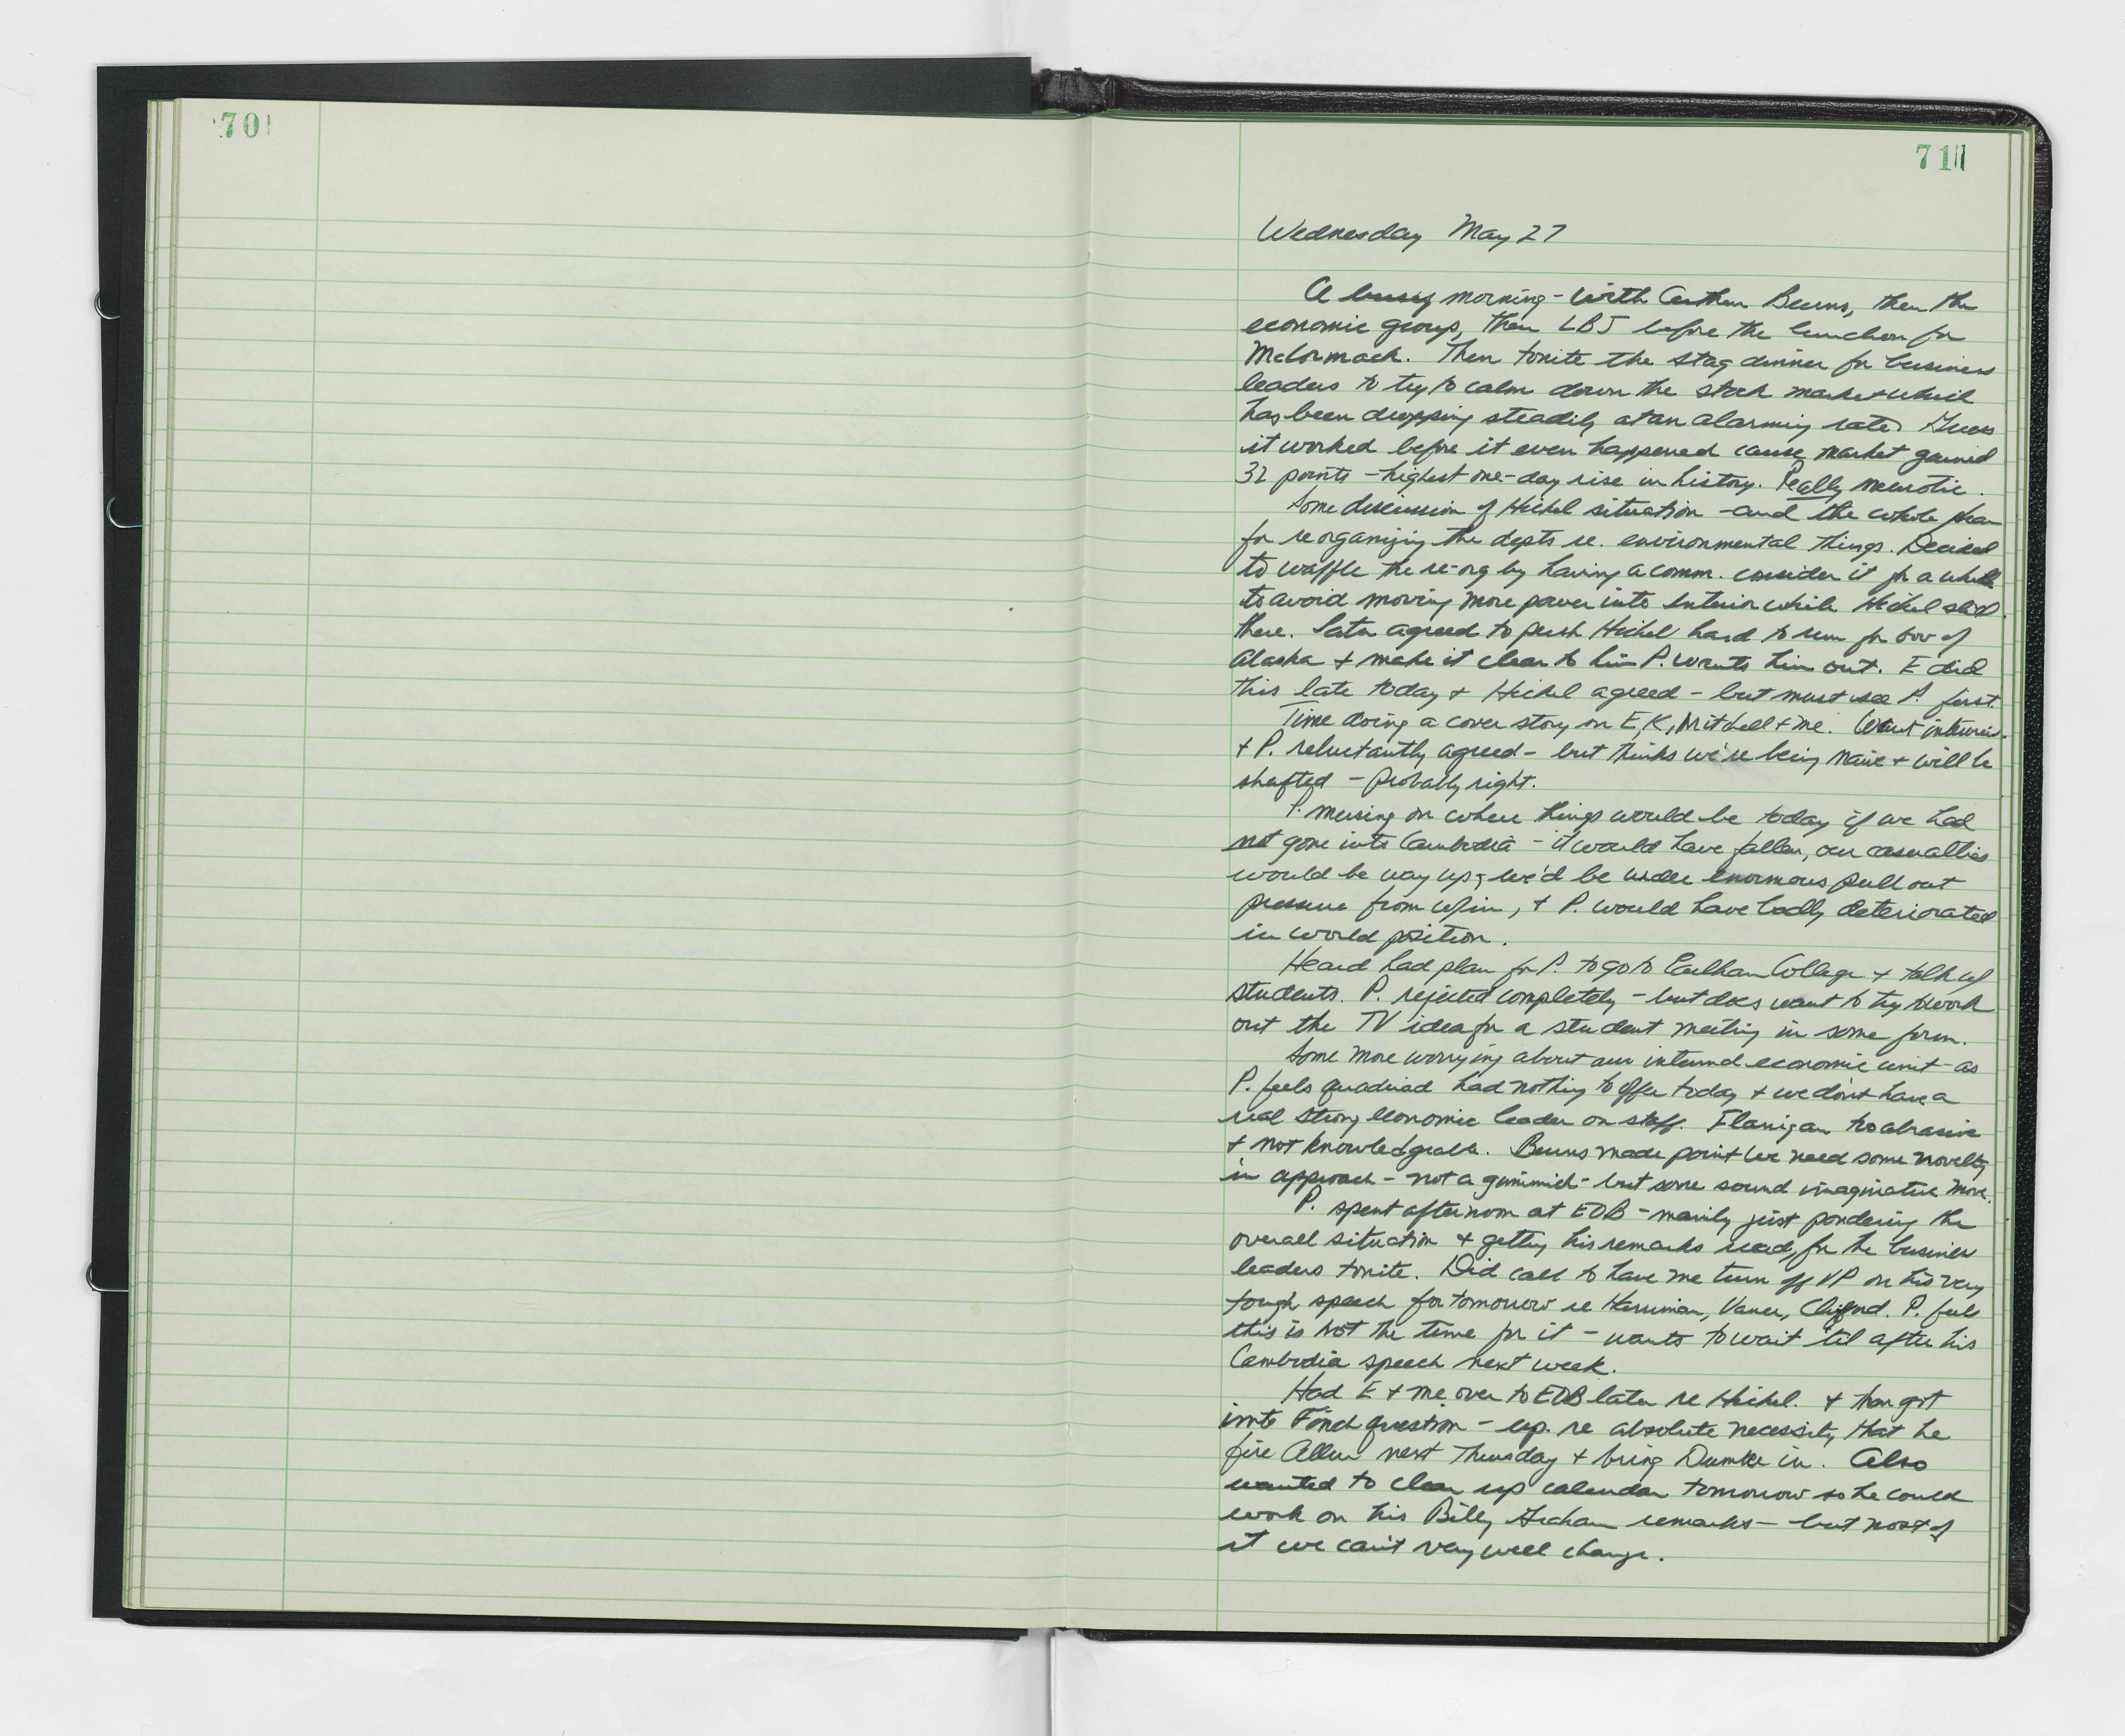 70
71
Wednesday May 27
A busy morning - with Arthur Burns, then the
economic group, then LBJ before the luncheon for
McCormack. Then tonite the stag dinner for business
leaders to try to calm down the stock market which
has been dropping steadily at an alarming rate. Guess
it worked before it even happened cause market gained
32 points - highest one-day rise in history. Really neurotic.
Some discussion of Hickel situation - and the whole plan
for reorganizing the depts re. environmental things. Decided
to waffle the re-org by having a comm. consider it for a while
to avoid moving more power into Interior while Hickel still
there. Later agreed to push Hickel hard to run for Gov of
Alaska + make it clear to him P. wants him out. E did
this late today + Hickel agreed - but must see P. first.
Time doing a cover story on E, K, Mitchell + me. Want interview
+ P. reluctantly agreed - but thinks we're being naive + will be
shafted - probably right.
P. musing on where things would be today if we had
not gone into Cambodia - it would have fallen, our casualties
would be way up, we'd be under enormous pull out
pressure from w/in, + P. would have badly deteriorated
in world position.
Heard had plan for P. to go to Earlham College + talk w/
students. P. rejected completely - but does want to try to work
out the TV idea for a student meeting in some form.
Some more worrying about our internal economic unit - as
P. feels quadriad had nothing to offer today + we don't have a
real strong economic leader on staff. Flanigan too abrasive
+ not knowledgeable. Burns made point we need some novelty
in approach - not a gimmick - but some sound imaginative move.
P. spent afternoon at EOB - mainly just pondering the
overall situation + getting his remarks ready for the business
leaders tonite. Did call to have me turn off VP on his very
tough speech for tomorrow re Harriman, Vance, Clifford. P. feels
this is not the time for it - wants to wait 'til after his
Cambodia speech next week.
Had E + me over to EOB later re Hickel. + then got
into Finch question - esp. re absolute necessity that he
fire Allen next Thursday + bring Dumke in. Also
wanted to clear up calendar tomorrow so he could
work on his Billy Graham remarks - but most of
it we can't very well change.